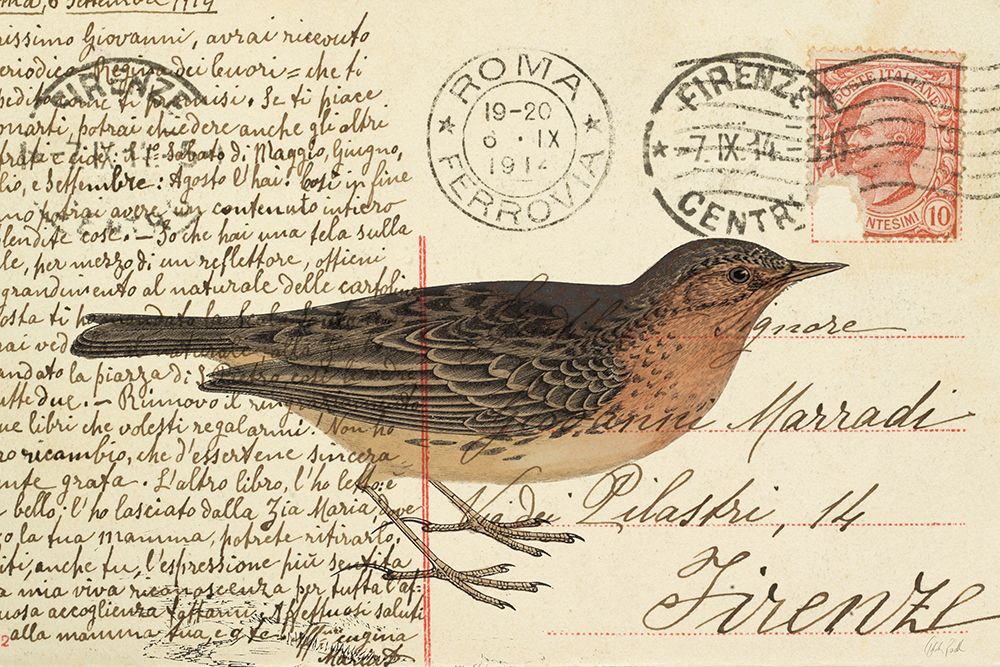 Roma, 6 Settembre 1914
rissimo Giovanni, avrai ricevuto
eriodico = Regina dei Cuori = che ti
pedito come ti promisi. Se ti piace
onarti, potrai chiedere anche gli altri
Sabato di Maggio, Giugno,
lio, e Settembre: Agosto l'hai. Così in fine
nno potrai avere un contenuto intiero
lendite cose. - So che hai una tela sulla
le, per mezzo di un reflettore, ottieni
grandimento al naturale delle cartolin
osta ti ho mandato la
rai ved
andato la piazza di S
utte due. - Rinnovo il
ue libri che volesti regalarmi. Non ho
ro ricambio, che d'essertene sincera
nte grata. L'altro libro, l'ho letto: è
bello: l'ho lasciato dalla Zia Maria, ove
o la tua mamma, potrete ritirarlo.
iti, anche tu, l'espressione più sentita
a mia viva riconoscenza per tutta l'af
uosa accoglienza fattami. Affettuosi saluti
alla mamma tua, e a te
cugina
2
FIRENZE
ROMA
19-20
6 · IX
1914
FERROVIA
FIRENZE
-7.IX.14-
CENTR
POSTE ITALIANE
CENTESIMI 10
Signore
Giovanni Marradi
Via dei Pilastri, 14
Firenze